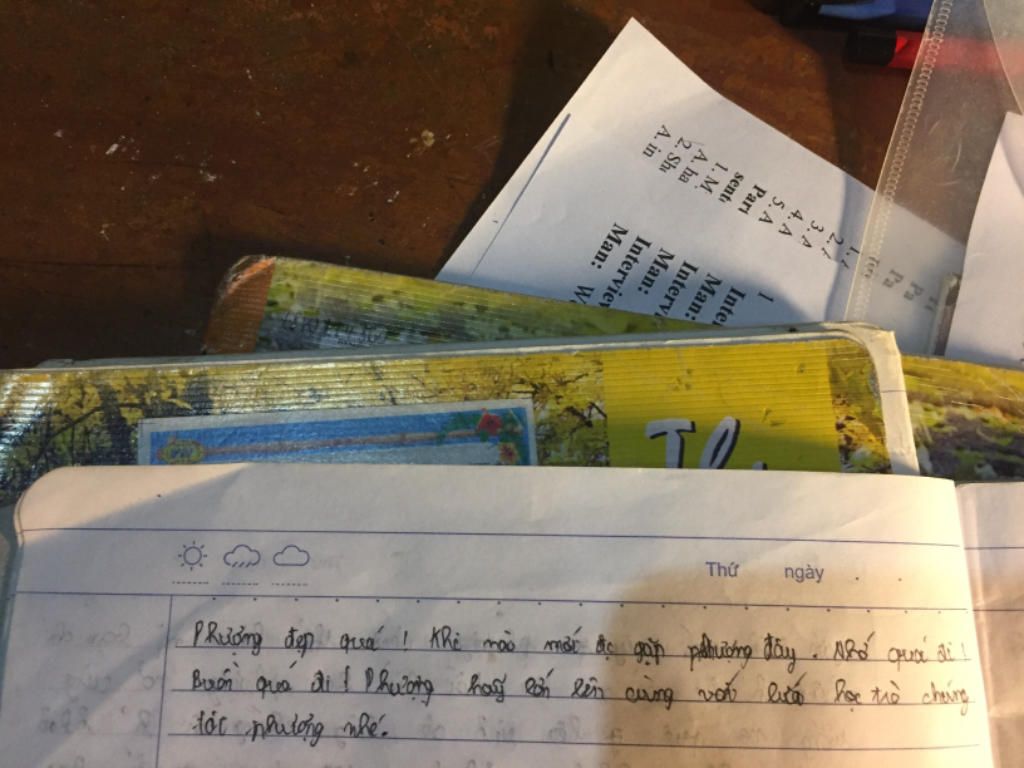 1. M.
sent
Pari
5. A
4. A
3. A
2. A
1. A
2. Sh
A. ha
A. in
Pa
Pa
1
Intel
Man:
Intervi
Man:
Interview
Man:
Th
Thứ ngày . .
Phượng đẹp quá ! Khi nào mới đc gặp phượng đây . Nhớ quá đi !
Buồn quá đi ! Phượng hãy lớn lên cùng với lứa học trò chúng
tớ, phượng nhé.